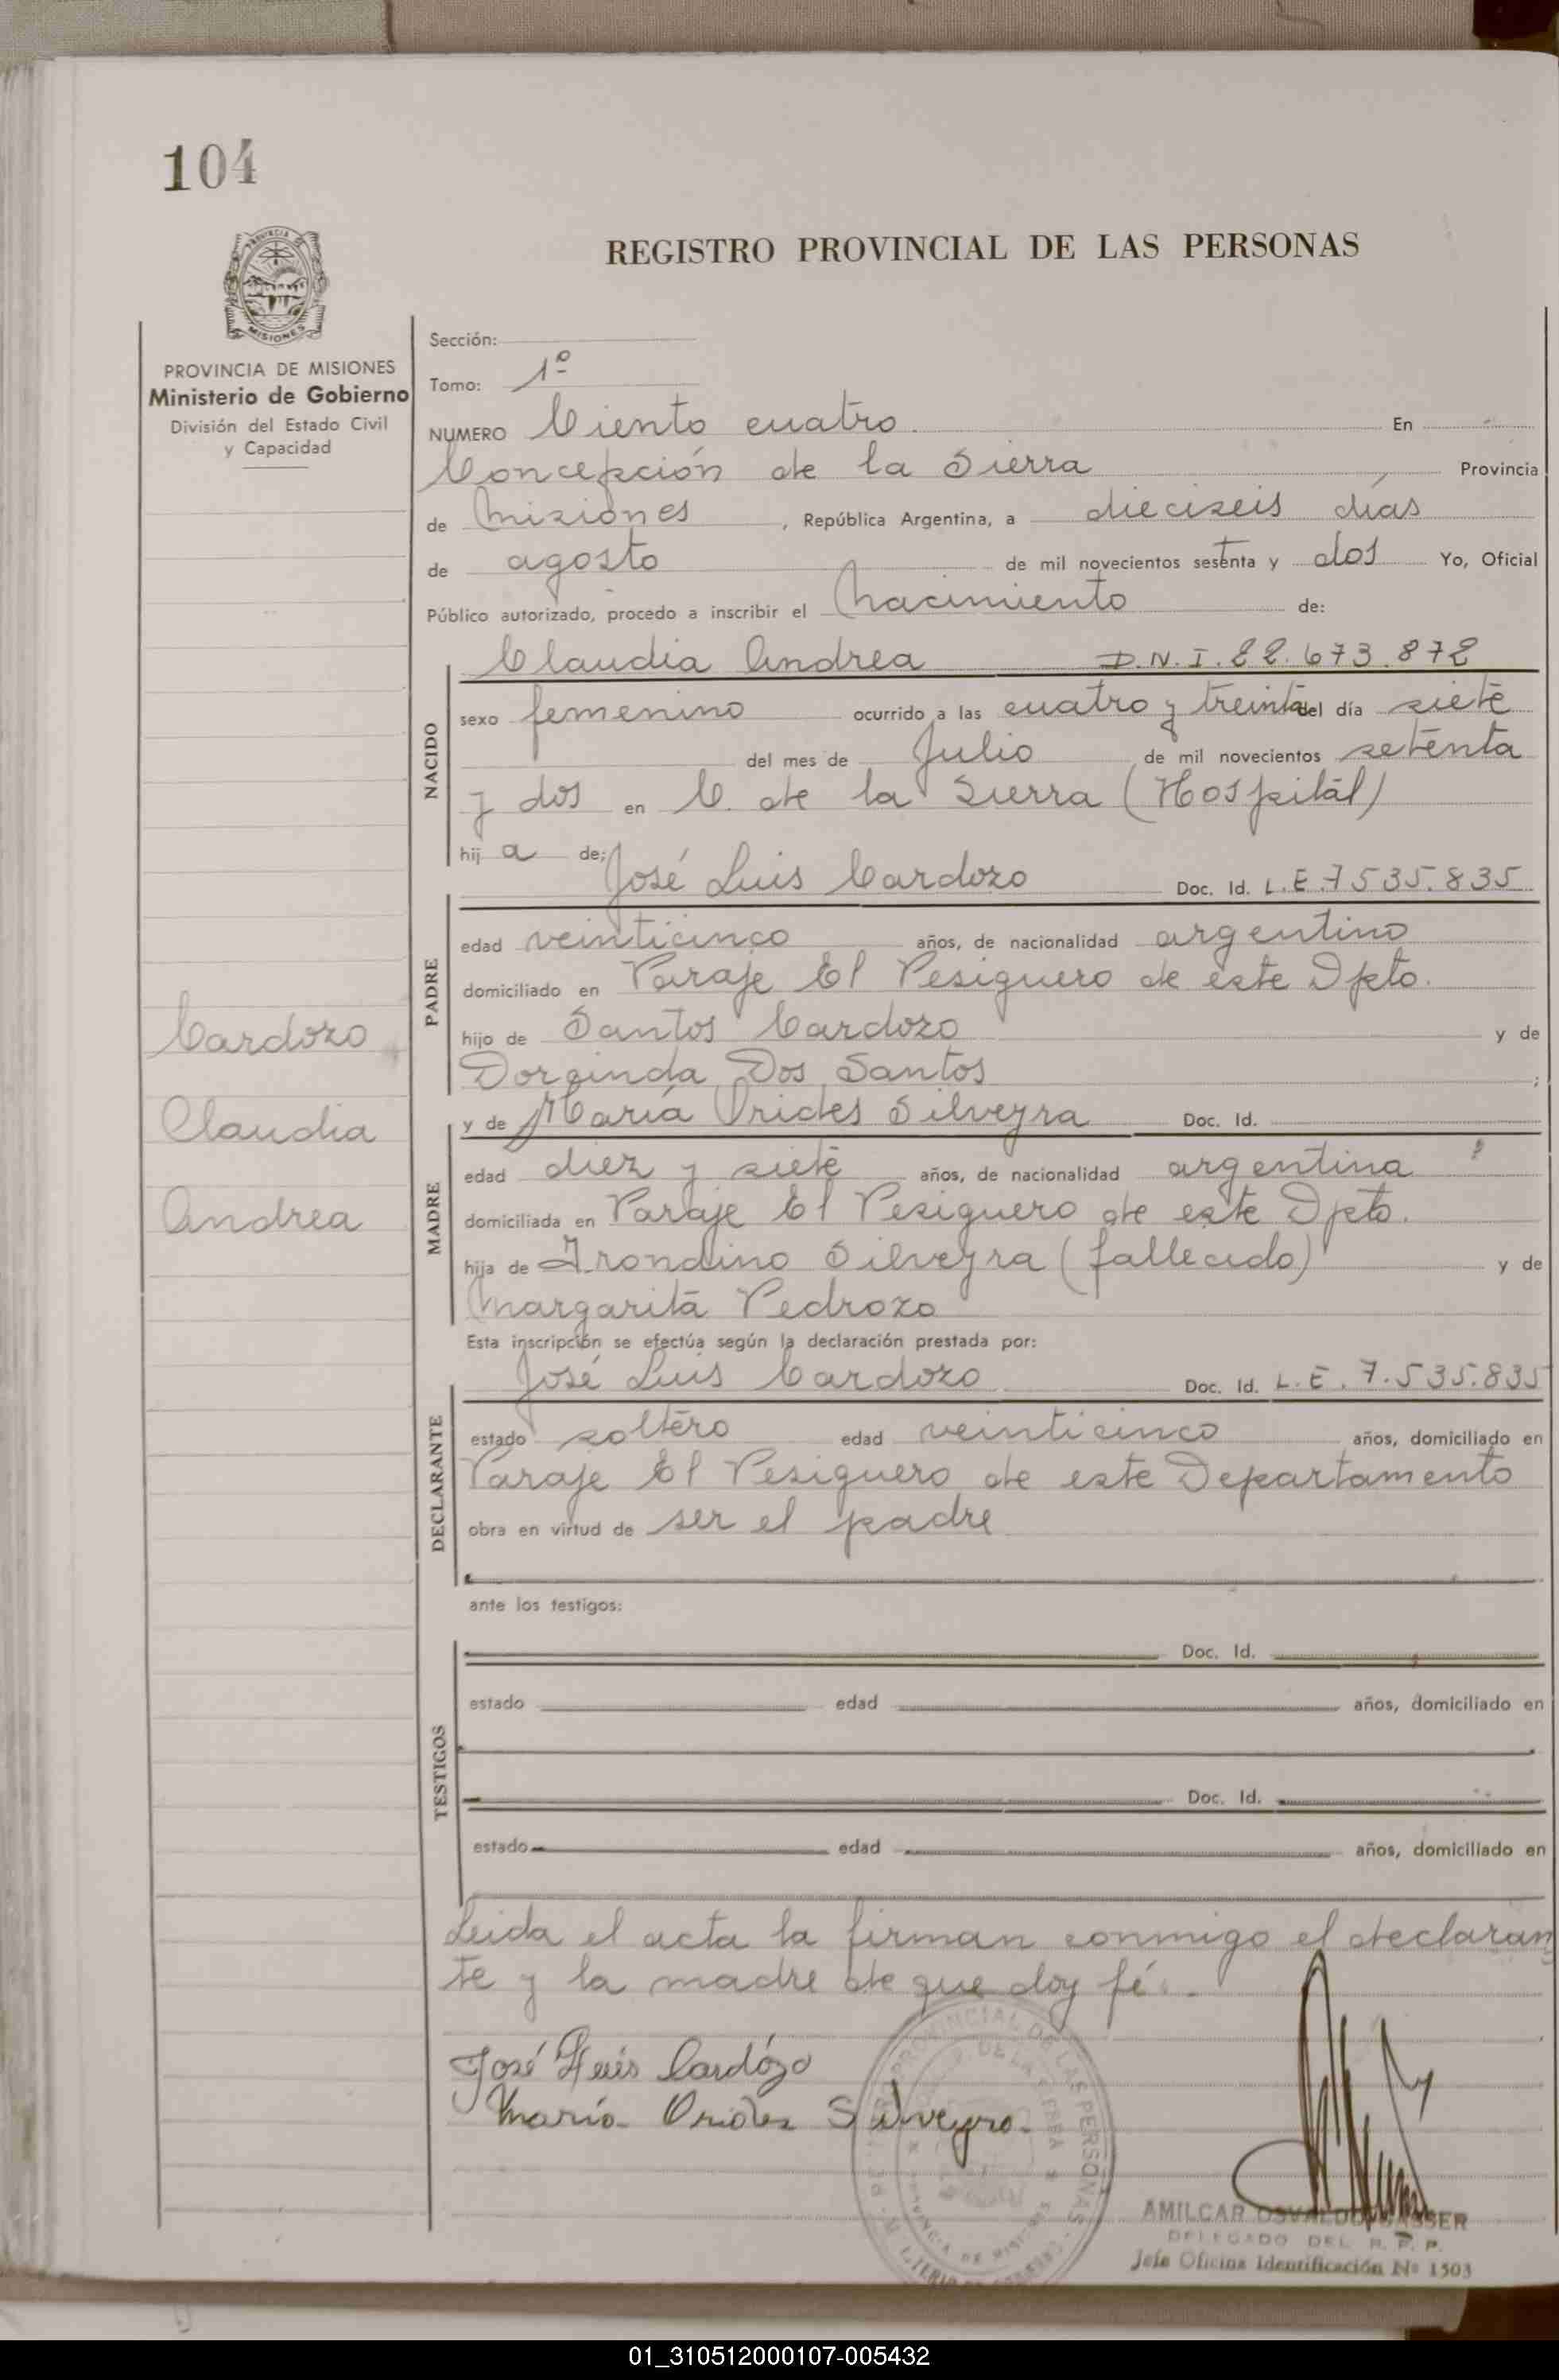 104
REGISTRO PROVINCIAL DE LAS PERSONAS
PROVINCIA DE MISIONES
Ministerio de Gobierno
División del Estado Civil
y Capacidad
Sección:
Tomo: 1º
NUMERO Ciento cuatro. En
Concepción de la Sierra Provincia
de Misiones, República Argentina, a dieciseis días
de agosto de mil novecientos sesenta y dos Yo, Oficial
Público autorizado, procedo a inscribir el Nacimiento de:
NACIDO
Claudia Andrea D.N.I. 22.673.872
sexo femenino ocurrido a las cuatro y treinta del día siete
del mes de Julio de mil novecientos setenta
y dos en C. de la Sierra (Hospital)
hij a de: José Luis Cardozo Doc. Id. L.E. 7535.835
PADRE
edad veinticinco años, de nacionalidad argentino
domiciliado en Paraje El Pesiguero de este Dpto.
hijo de Santos Cardozo y de
Dorginda Dos Santos ;
y de María Orides Silveyra Doc. Id.
MADRE
edad diez y siete años, de nacionalidad argentina
domiciliada en Paraje El Pesiguero de este Dpto.
hija de Irondino Silveyra (fallecido) y de
Margarita Pedrozo
Cardozo
Claudia
Andrea
Esta inscripción se efectúa según la declaración prestada por:
DECLARANTE
José Luis Cardozo Doc. Id. L.E. 7.535.835
estado soltero edad veinticinco años, domiciliado en
Paraje El Pesiguero de este Departamento
obra en virtud de ser el padre
ante los testigos:
TESTIGOS
Doc. Id.
estado edad años, domiciliado en
Doc. Id.
estado edad años, domiciliado en
Leida el acta la firman conmigo el declaran
te y la madre de que doy fé.
José Luis Cardózo
María Orides Silveyra
AMILCAR OSVALDO
DELEGADO DEL R. P. P.
Jefe Oficina Identificación Nº 1503
01_310512000107-005432